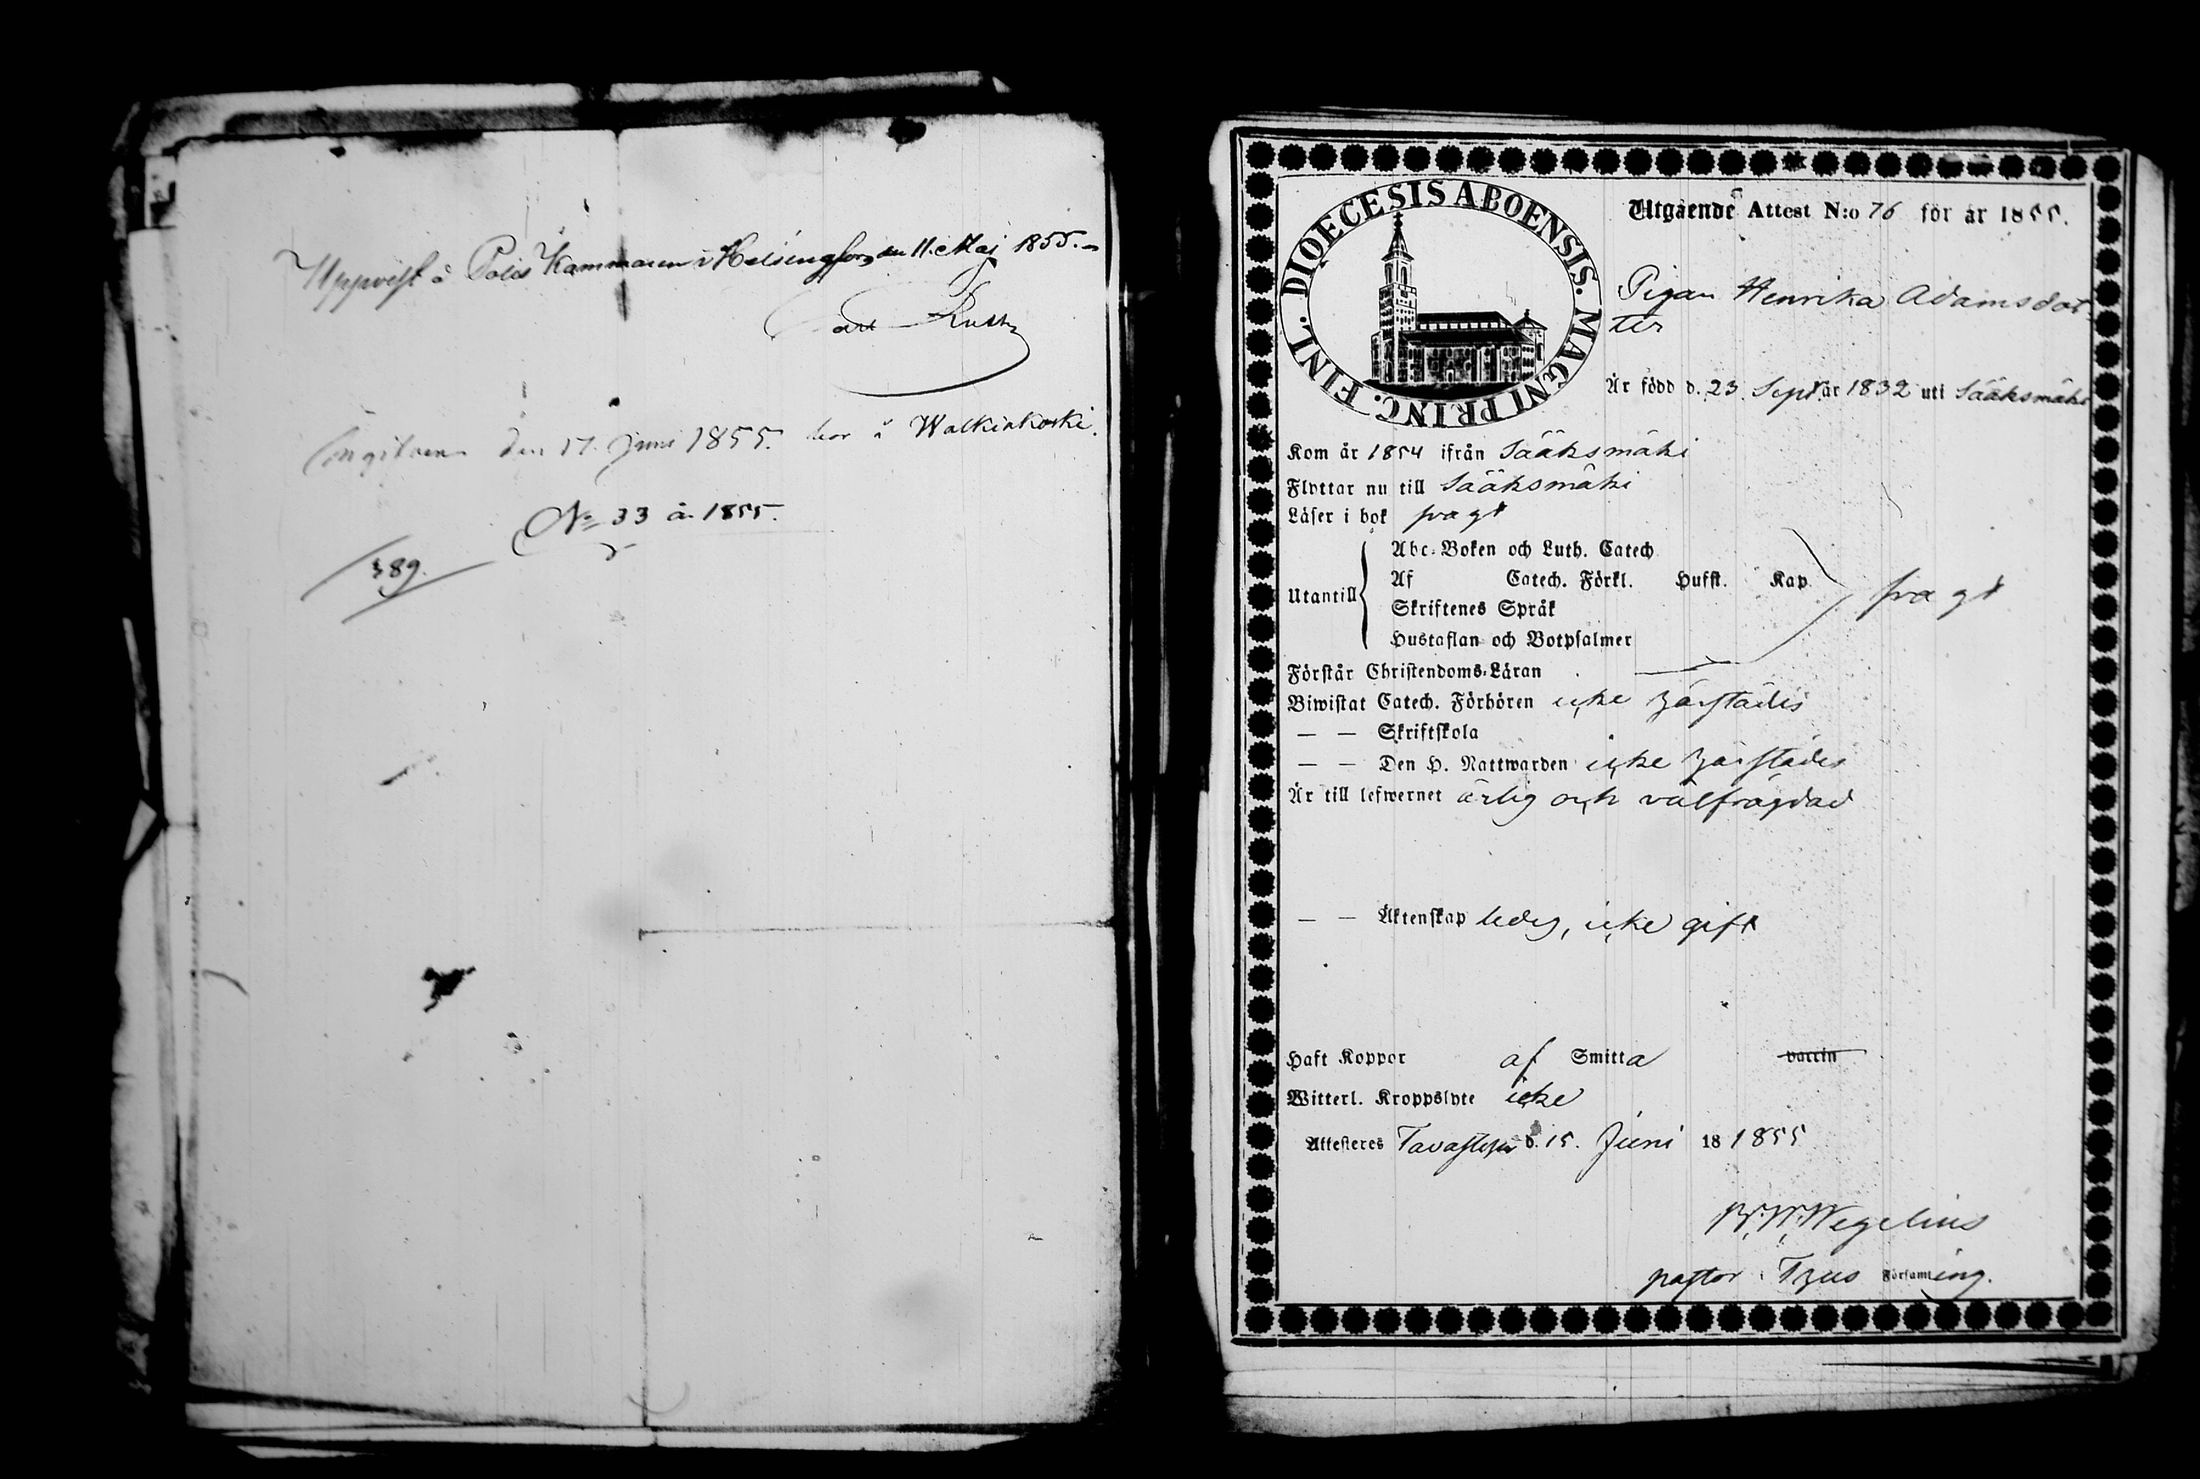 Uppvist å Polis Kammaren i Helsingfors den 11. Maj 1855.
Angifven den 17. Juni 1855. bor å Walkiakoski.
No 33 år 1855.
389.
DIOECESIS ABOENSIS. MAGNI PRINC. FINL.
Utgående Attest N:o 76 för år 1855.
Pigan Henrika Adamsdot-
ter
Är född d. 23 Sept. år 1832 uti Sääksmäki
Kom år 1854 ifrån Sääksmäki
Flyttar nu till Sääksmäki
Läser i bok svagt
Utantill
Abc-Boken och Luth. Catech
Af Catech. Förkl. Hufst. Kap
svagt
Skriftenes Språk
Hustaflan och Botpsalmer
Förstår Christendoms-Läran
Biwistat Catech. Förhören icke härstädes
— — Skriftskola
— — Den H. Nattwarden icke härstädes
Är till lefwernet ärlig och välfrägdad
— — Äktenskap ledig, icke gift
Haft Koppor af Smitta vaccin
Witterl. Kroppslyte icke
Attesteres Tavastehus d. 15. Juni 18 1855
W. Wegelius
pastor i Tyus Församling.